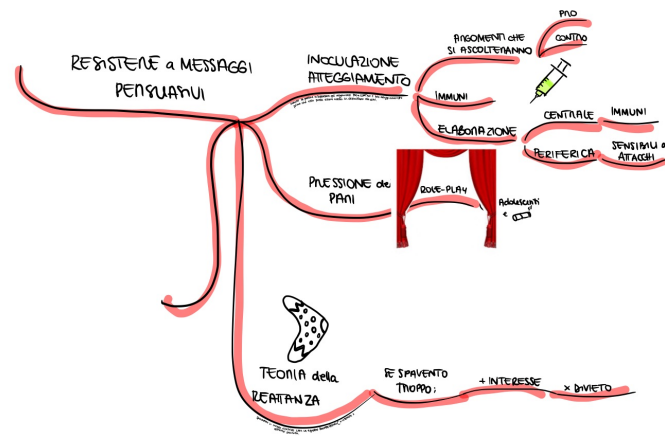 RESISTERE a MESSAGGI
PERSUASIVI
INOCULAZIONE
ATTEGGIAMENTO
ARGOMENTI CHE
SI ASCOLTERANNO
PRO
CONTRO
IMMUNI
ELABORAZIONE
CENTRALE
IMMUNI
PERIFERICA
SENSIBILI a
ATTACCHI
PRESSIONE dei
PARI
ROLE-PLAY
Adolescenti
e
TEORIA della
REATTANZA
SE SPAVENTO
TROPPO:
+ INTERESSE
x DIVIETO